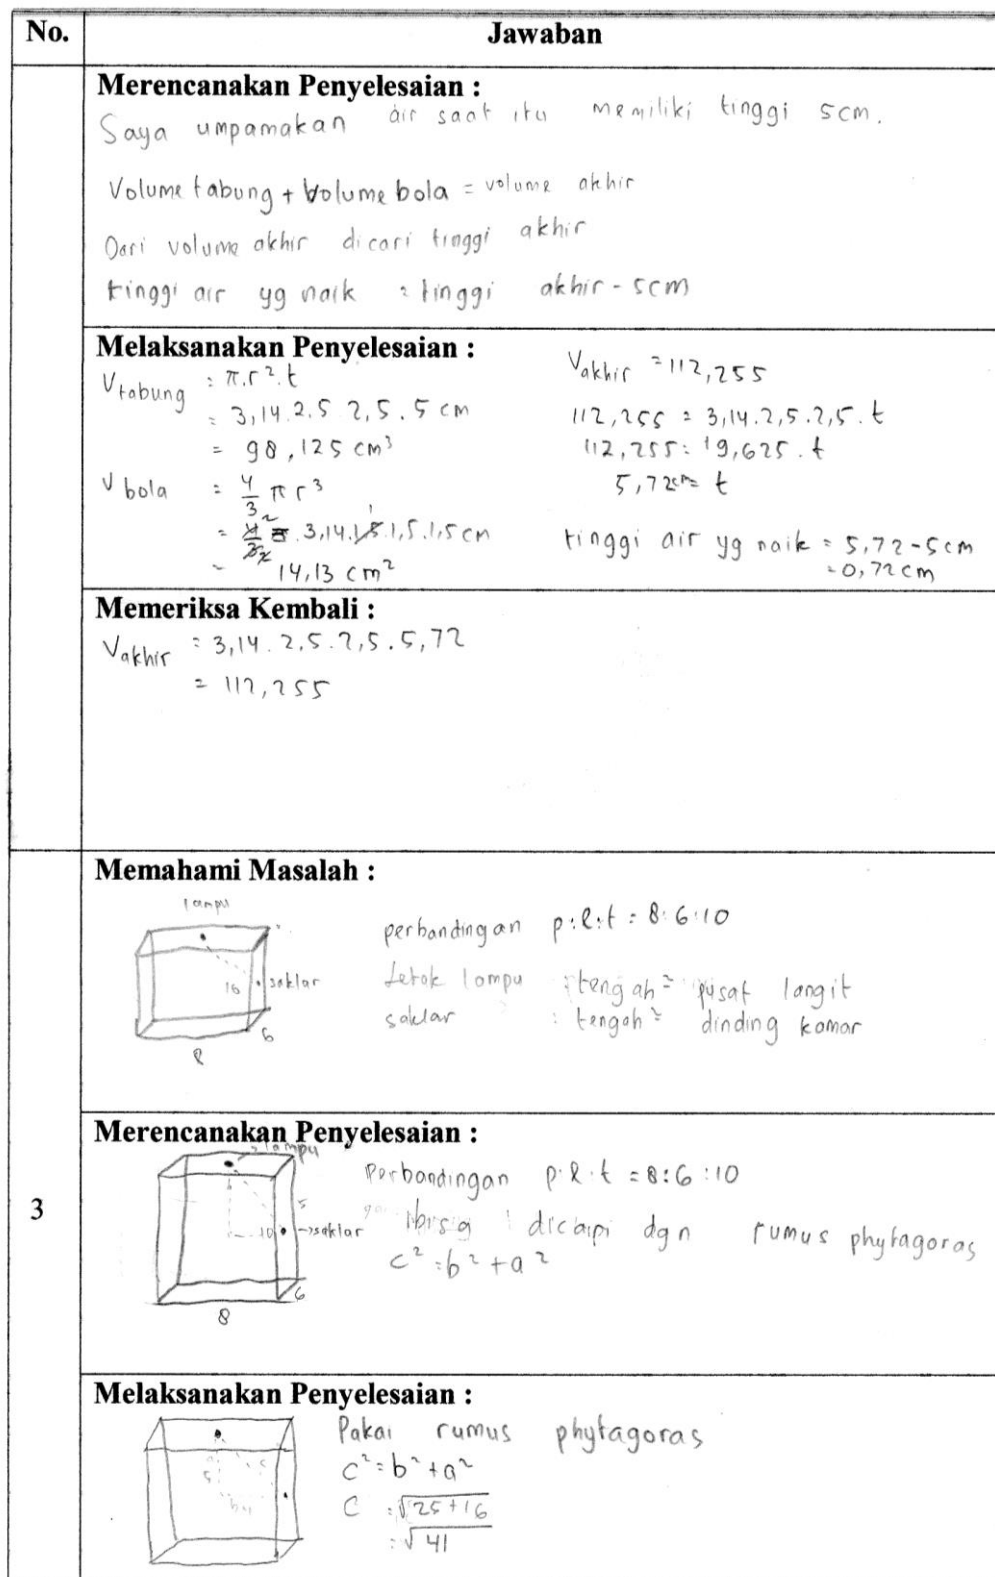 No.
Jawaban
Merencanakan Penyelesaian :
Saya umpamakan air saat itu memiliki tinggi 5cm.
Volume tabung + Volume bola = volume akhir
Dari volume akhir dicari tinggi akhir
tinggi air yg naik = tinggi akhir - 5cm
Melaksanakan Penyelesaian :
V tabung = π.r².t
= 3,14.2,5 2,5.5 cm
= 98,125 cm³
V bola = 4/3 π r³
3,14. 1,5.1,5 cm
= 14,13 cm²
Vakhir = 112,255
112,255 = 3,14.2,5.2,5.t
112,255 = 19,625.t
5,72cm = t
tinggi air yg naik = 5,72-5cm
= 0,72cm
Memeriksa Kembali :
Vakhir = 3,14.2,5.2,5.5,72
= 112,255
3
Memahami Masalah :
lampu
saklar
10
6
8
perbandingan p:l:t = 8:6:10
Letak lampu : tengah² pusat langit
saklar : tengah² dinding kamar
Merencanakan Penyelesaian :
lampu
5
10
saklar
6
8
Perbandingan p:l:t = 8:6:10
dgn rumus phytagoras
c² = b² + a²
Melaksanakan Penyelesaian :
5
c
b4
Pakai rumus phytagoras
c² = b² + a²
C = √25+16
= √41